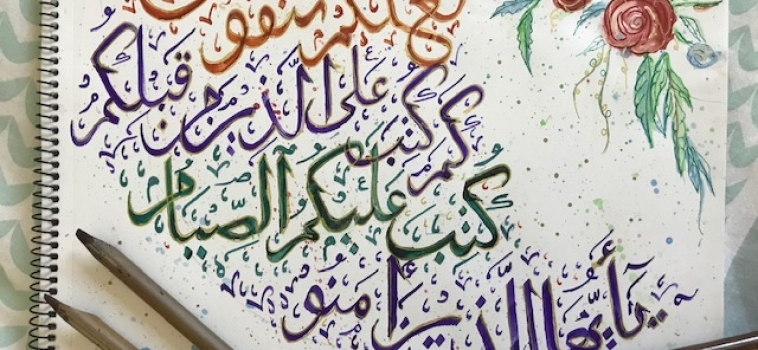 يأيها الذين آمنوا
كتب عليكم الصيام
كما كتب على الذين من قبلكم
لعلكم تتقون